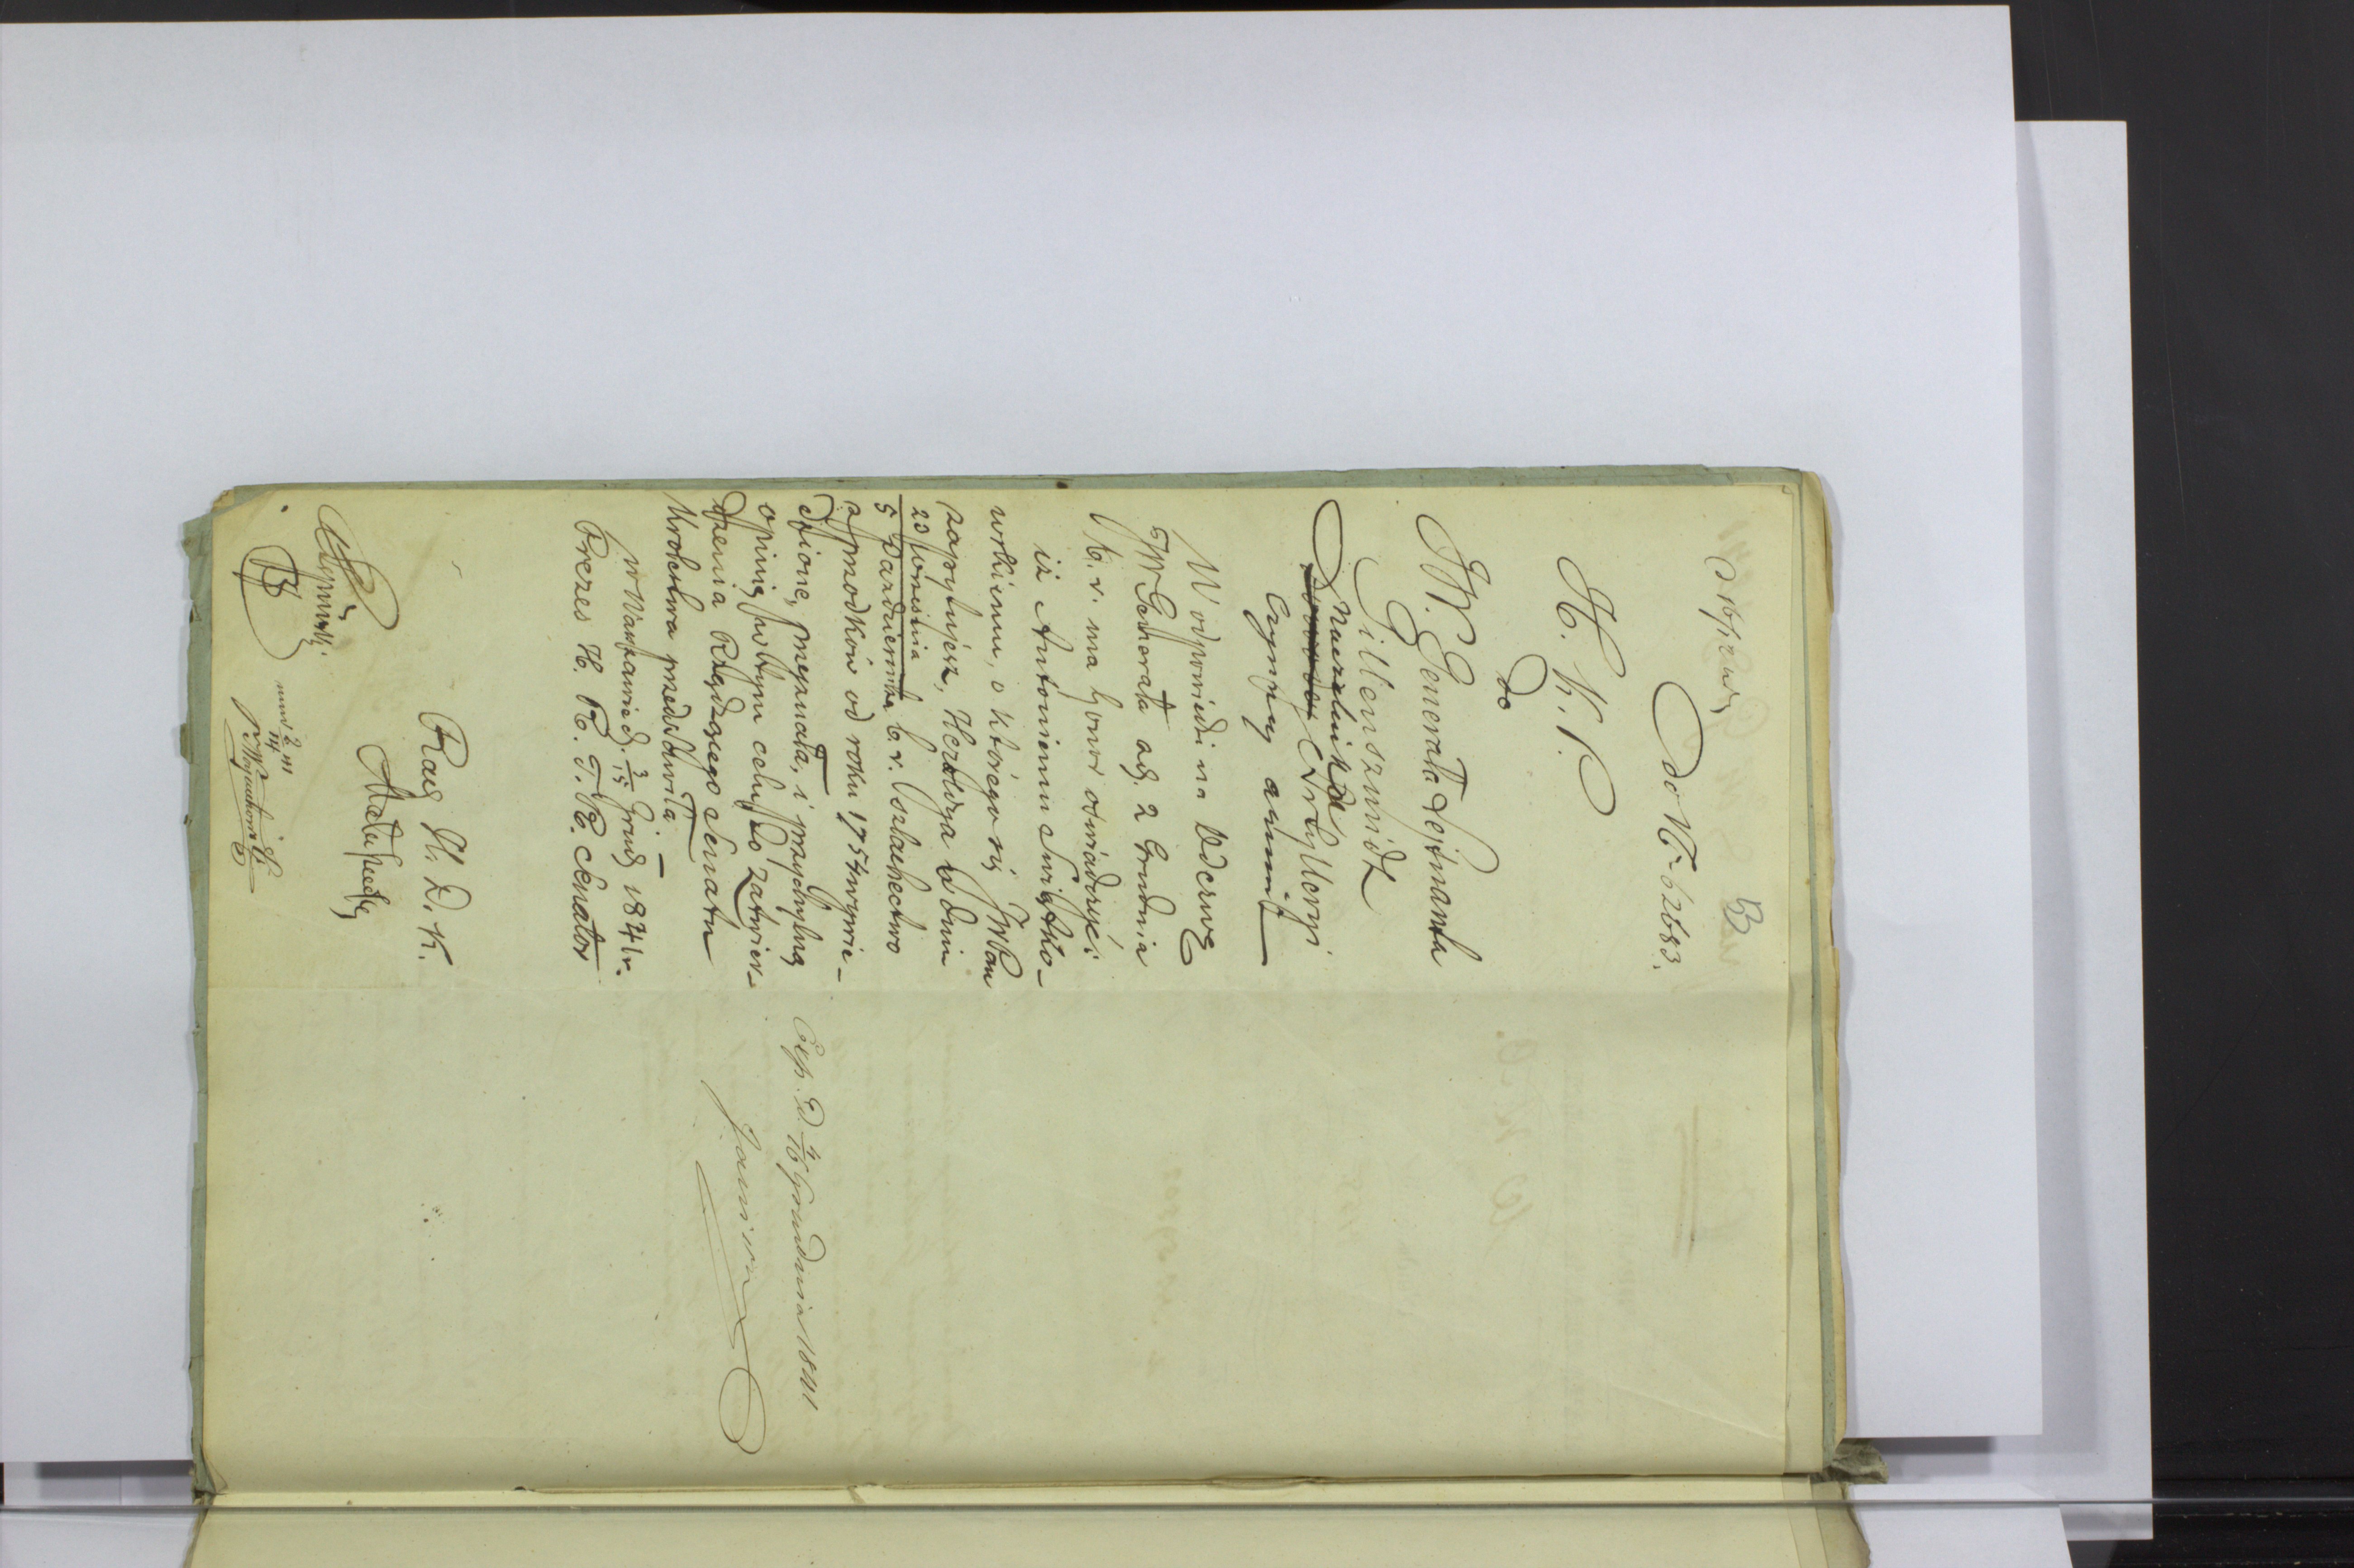 do N. 62683.
H. K. P.
do
JW. Generała Lejtnanta
Gillenszmidt
Naczelnika Artylleryi
Czynney armii
W odpowiedzi na Odezwę
JW Generała od 2 Grudnia
b. r. ma honor oświadczyć;
iż Antoniemu Świątko-
wskiemu, o którego się JWPan
zapytujesz, Heroldya w dniu
23 Września
5 Października b. r. Szlachectwo
z przodków od roku 1754 wywie-
dzione, przyznała, i przychylną
opinię w tym celu, do zatwier-
dzenia Rządzącego Senatu
Królestwa przedstawiła.
w Warszawie d. 3/15 Grud 1841 r.
Prezes H. R. T. R. Senator
Rad H. D. K.
Exp. d 4/16 Grudnia 1841